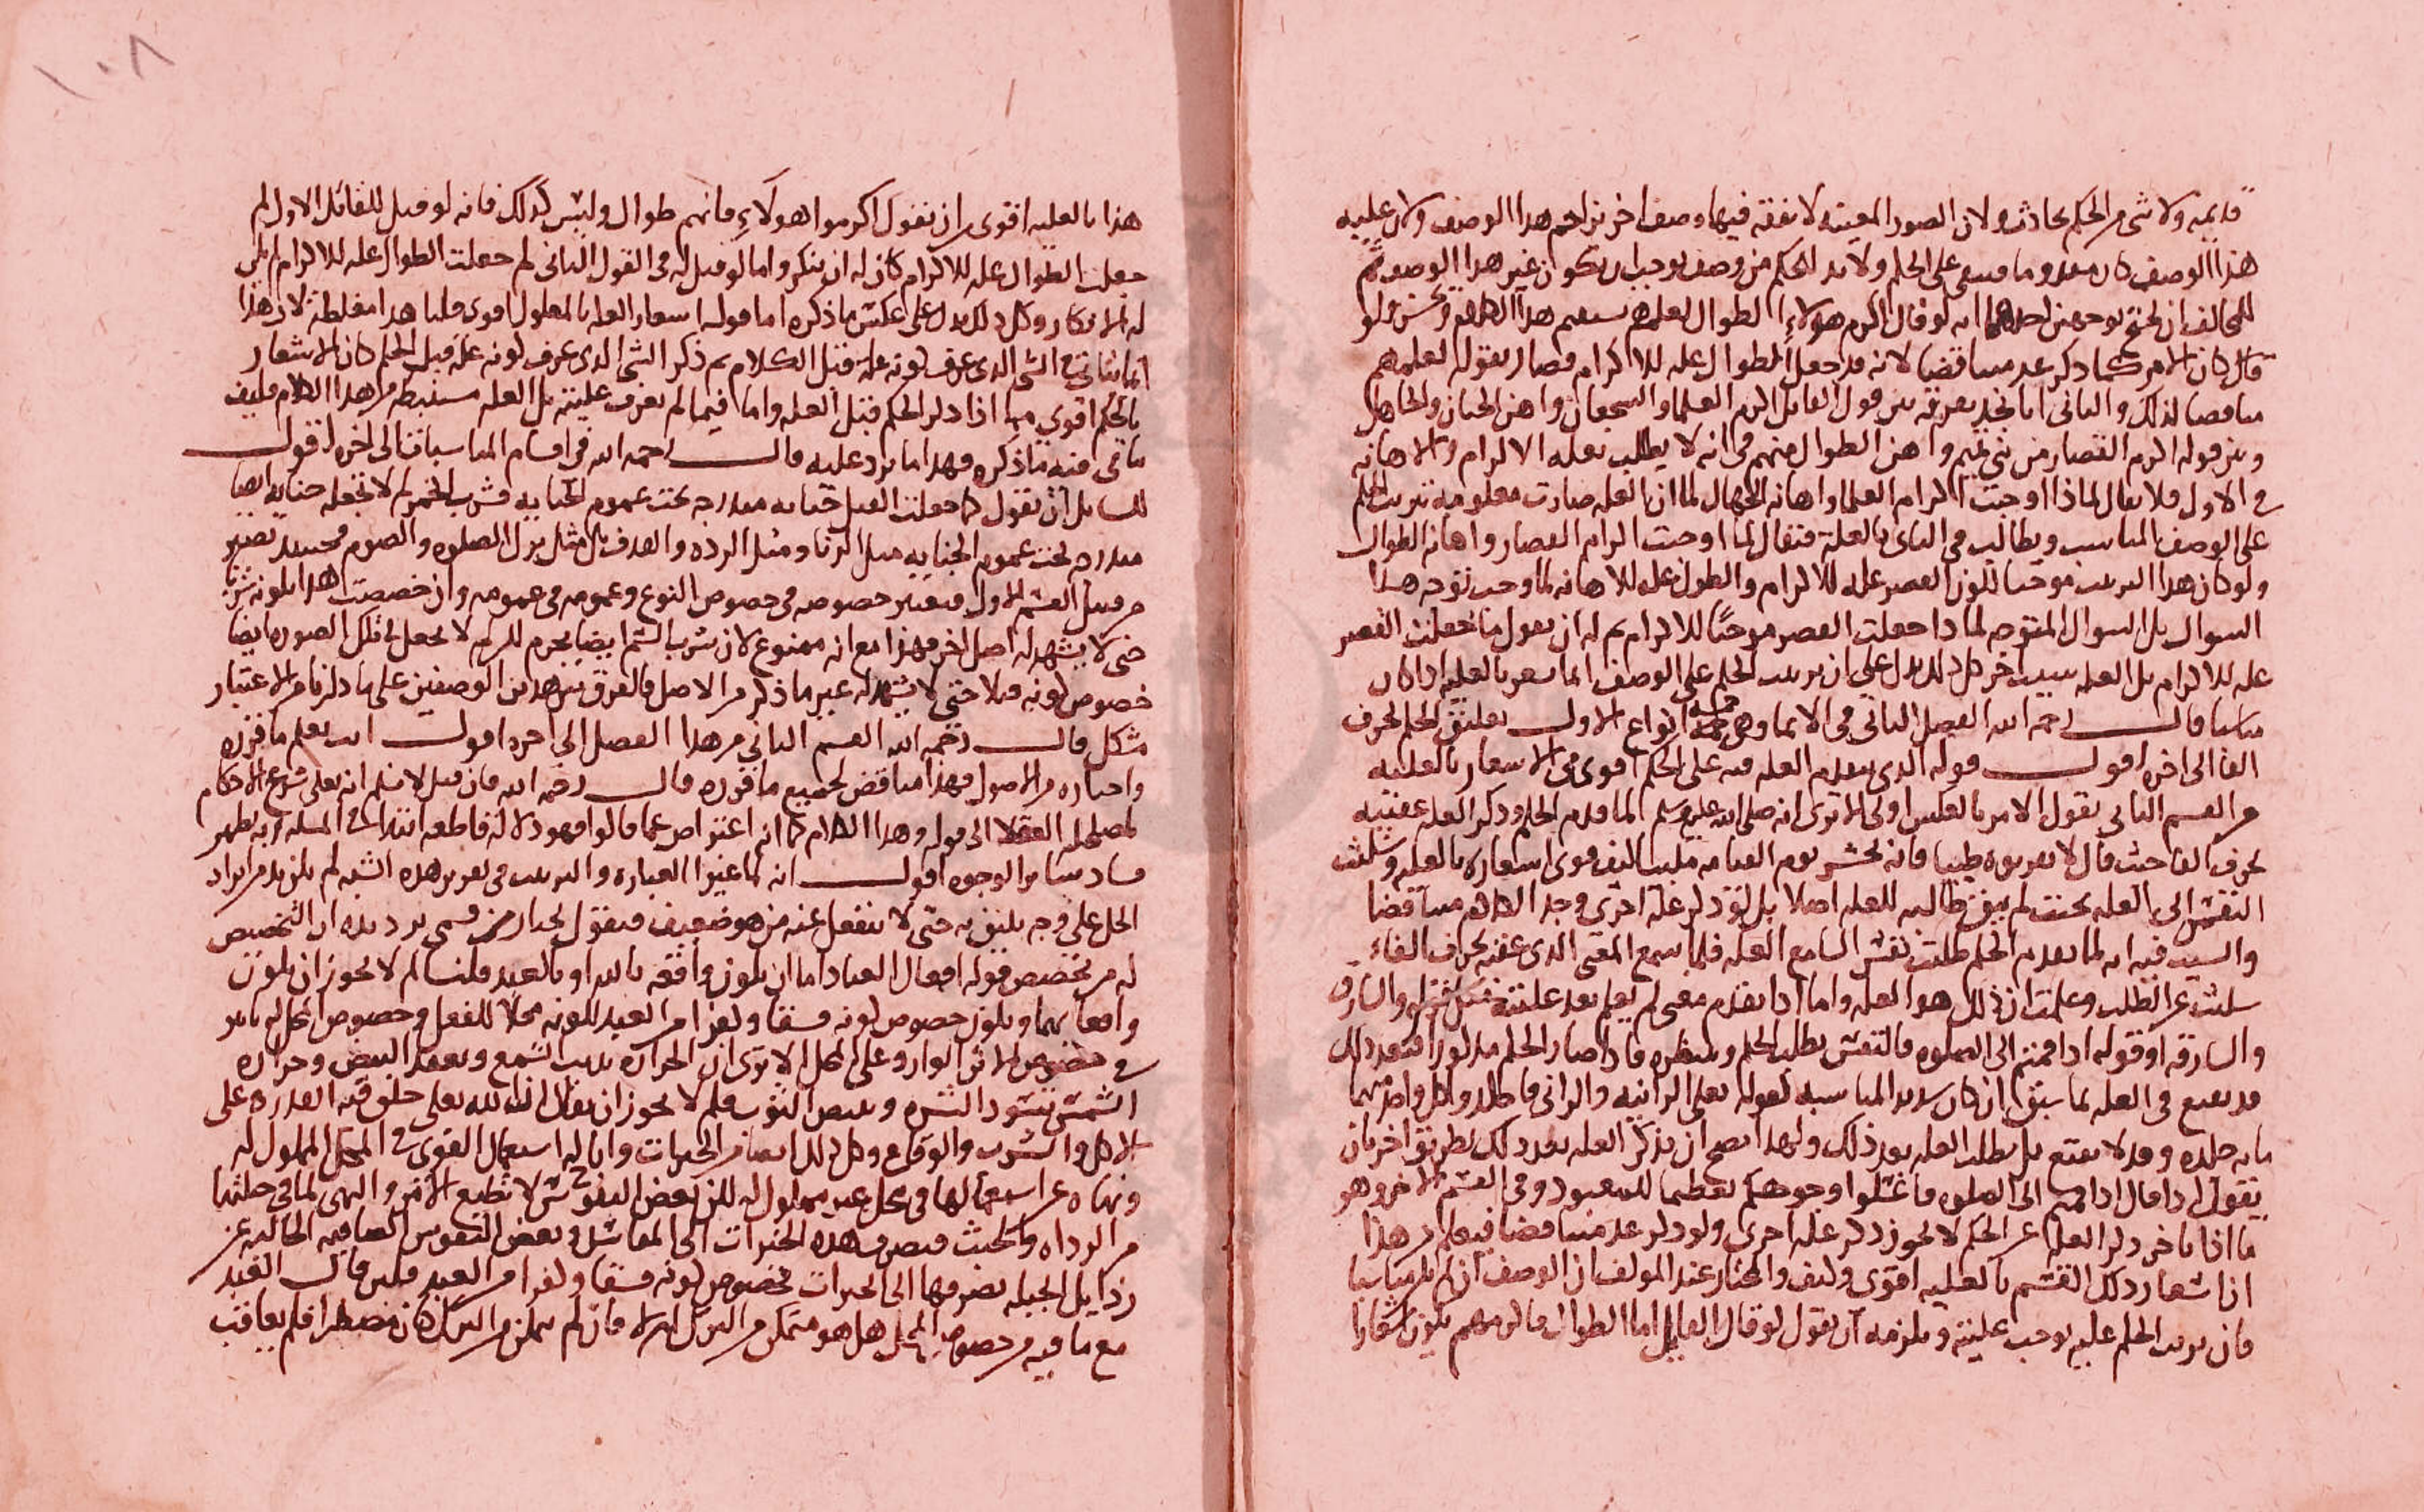 قديمه ولا شى من الحكم بحادث ولان الصور المعينه لا نفقه فيها وصف اخر يزاحم هذا الوصف ولان عليه
هذا الوصف كان معدوما فيبقى على الحكم ولا بد للحكم من وصف يوجب ان يكون غير هذا الوصف ثم
للمخالف ان يحتج بوجهين احدهما انه لو قال اكرم هولاء الطوال لعلمهم يستقيم هذا الكلام ويحسن ولو
قال كان الامر كما ذكر عد مناقضا لانه قد جعل الطوال عله للاكرام فصار بقوله لعلمهم
مناقضا لذلك والثانى انا نجد تفرقه بين قول القايل اكرم العلما والشجعان واهن الجبان والجاهل
وبين قوله اكرم القصار من بنى تميم واهن الطوال منهم فى انه لا يطلب بعله الاكرام والاهانه
فى الاول فلا يقال لماذا اوجبت اكرام العلما واهانه الجهال لما ان العله صارت معلومه بترتب الحكم
على الوصف المناسب ويطالب فى الثانى بالعله فيقال لما اوجبت اكرام القصار واهانه الطوال
ولو كان هذا الترتيب موجبا لكون القصر عله للاكرام والطول عله للاهانه لما وجب توجه هذا
السوال بل السوال المتوجه لماذا جعلت القصر موجبا للاكرام ثم له ان يقول ما جعلت القصر
عله للاكرام بل العله سبب اخر كل ذلك يدل على ان ترتيب الحكم على الوصف انما يشعر بالعليه اذا كان
مناسبا قال رحمه الله الفصل الثانى فى الايما وهى خمسه انواع الاول تعليق الحكم بحرف
الفا الى اخره اقول قوله الذى يتقدم العله فيه على الحكم اقوى فى الاشعار بالعليه
من القسم الثانى نقول الامر بالعكس اولى الا ترى انه صلى الله عليه وسلم لما قدم الحكم وذكر العله عقيبه
بحرف الفا حيث قال لا تقربوه طيبا فانه يحشر يوم القيامه ملبيا كيف قوى اشعاره بالعله وسكنت
النفس الى العله بحيث لم يبق طالبه للعله اصلا بل لو ذكر عله اخرى وجد الكلام مناقضا
والسبب فيه انه لما تقدم الحكم طلبت نفس السامع العله فلما سمع المعنى الذى عقبه بحرف الفاء
سكنت عن الطلب وعلمت ان ذلك هو العله واما اذا تقدم معنى لم يعلم بعد عليته مثل قوله والسارق
والسارقه او قوله اذا قمتم الى الصلوه فالنفس تطلب الحكم وتنتظره فاذا صار الحكم مذكورا فبعد ذلك
قد يقنع فى العله بما سبق ان كان شديد المناسبه كقوله تعالى الزانيه والزانى فاجلدوا كل واحد منهما
مايه جلده وقد لا يقنع بل يطلب العله بعد ذلك ولهذا يصح ان يذكر العله بعد ذلك بطريق اخر بان
يقول اذا قال اذا قمتم الى الصلوه فاغسلوا وجوهكم تعظيما للمعبود وفى القسم الاخر وهو
ما اذا تاخر ذكر العله عن الحكم لا يجوز ذكر عله اخرى ولو ذكر عد مناقضا فيعلم من هذا
ان اشعار ذلك القسم بالعليه اقوى وكيف والمختار عند المولف ان الوصف ان لم يكن مناسبا
فان ترتب الحكم عليه يوجب عليته ويلزمه ان يقول لو قال القايل اما الطوال فاكرموهم يكون اشعارا
١٠٨
هذا بالعليه اقوى من ان يقول اكرموا هولاء فانهم طوال وليس كذلك فانه لو قيل للقائل الاول لم
جعلت الطوال عله للاكرام كان له ان ينكر واما لو قيل له فى القول الثانى لم جعلت الطوال عله للاكرام لم يكن
له الانكار وكل ذلك يدل على عكس ما ذكره اما قوله اشعار العله بالمعلول اقوى قلنا هذا مغلطة لان هذا
انما يتاتى فى الشى الذى عرف كونه عله قبل الكلام ثم ذكر الشى الذى عرف كونه علة قبل الحكم كان الاشعار
بالحكم اقوى مما اذا ذكر الحكم قبل العله واما فيما لم يعرف عليته بل العله مستنبطه من هذا الكلام فكيف
ياتى فيه ما ذكره فهذا ما يرد عليه قال رحمه الله فى اقسام المناسبات الى اخره اقول
للسايل ان يقول كما جعلت القتل جنايه مندرجه تحت عموم الجنايه فشرب الخمر لم لا تجعله جنايه ايضا
مندرجه تحت عموم الجنايه مثل الزنا ومثل الرده والقذف بل مثل ترك الصلوه والصوم فحينئذ تصير
من قبيل القسم الاول فيعتبر خصوصه فى خصوص النوع وعمومه فى عمومه وان خصصت هذا بكونه شربا
حتى لا يشهد له اصل اخر فهذا مع انه ممنوع لان شرب السم ايضا يحرم لكن لم لا تجعل فى تلك الصوره ايضا
خصوص كونه قتلا حتى لا يشهد له غير ما ذكر من الاصل فالفرق بين هذين الوصفين على ما ذكرنا من الاعتبار
مشكل قال رحمه الله القسم الثانى من هذا الفصل الى اخره اقول انت تعلم ما قرره
واختاره من الاصول فهذا مناقض لجميع ما قرره قال رحمه الله فان قيل لا نسلم انه تعالى شرع الاحكام
لمصلحه العقلا الى قوله وهذا الكلام كما انه اعتراض عما قالوا فهو دلاله قاطعه ابتدا فى المسله وبه يظهر
فساد ساير الوجوه اقول انه لما غير العباره والترتيب فى تقرير هذه الشبه لم يكن بد من ايراد
الحل على وجه يليق به حتى لا ينفعل عنه من هو ضعيف فنقول نختار من قسمى ترديده ان التخصيص
له من مخصص قوله افعال العباد اما ان يكون واقعه بالله او بالعبد قلنا لم لا يجوز ان يكون
واقعا بهما ويكون خصوص كونه فسقا وكفرا من العبد لكونه محلا للفعل وخصوص المحل له تاثير
فى خصوص الاثر الوارد على المحل الا ترى ان الحراره تذيب الشمع وتعقد البيض وحراره
الشمس تسود البشره وتبيض الثوب فلم لا يجوز ان يقال ان الله تعالى خلق فيه القدره على
الاكل والشرب والوقاع وكل ذلك ايضا من الخيرات واباح له استعمال القوى فى المحل المملوك له
ونهاه عن استعمالها فى محل غير مملوك له لكن بعض النفوس لا تطيع الامر والنهى لما فى جبلتها
من الرداه والخبث فيصرف هذه الخيرات الى المفاسد وبعض النفوس الصافيه الخاليه عن
رذايل الجبله يصرفها الى الخيرات فخصوص كونه فسقا وكفرا من العبد فلين قال العبد
مع ما فيه من خصوص المحل هل هو متمكن من الترك ام لا فان لم يمكن من الترك كان مضطرا فلم يعاقب